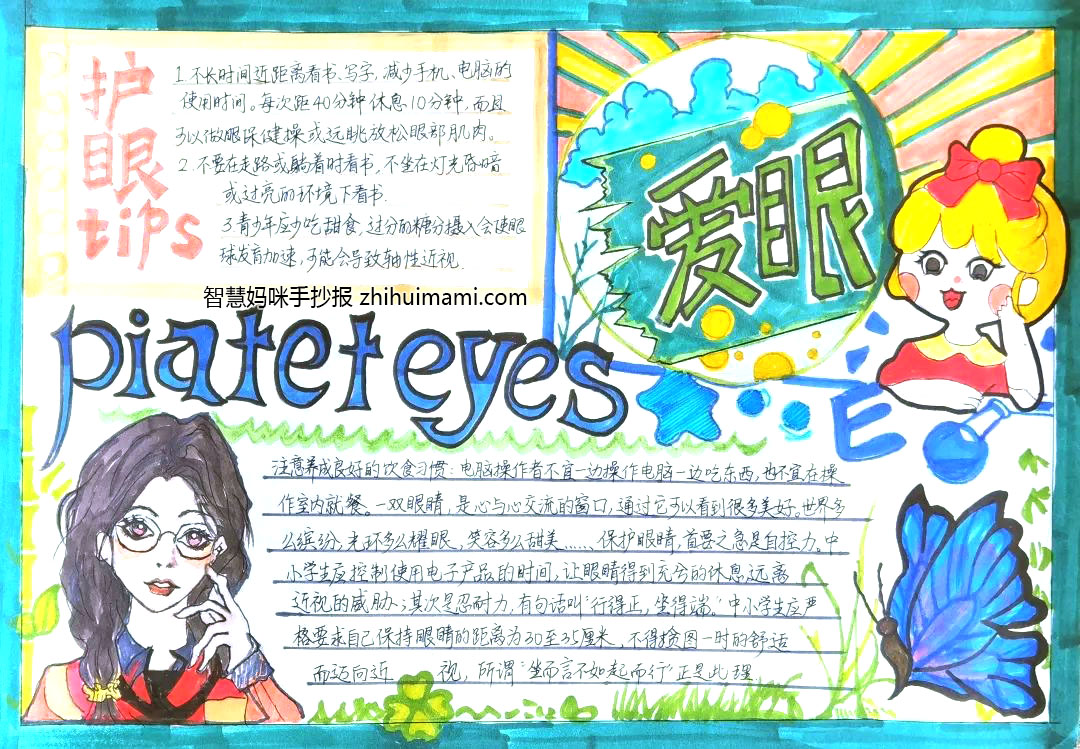 护眼tips
1.不长时间近距离看书、写字,减少手机、电脑的
使用时间。每次距40分钟休息10分钟,而且
可以做眼保健操或远眺放松眼部肌肉。
2.不要在走路或躺着时看书,不坐在灯光昏暗
或过亮的环境下看书.
3.青少年应少吃甜食,过分的糖分摄入会使眼
球发育加速,可能会导致轴性近视.
智慧妈咪手抄报 zhihuimami.com
爱眼
piatet eyes
E
注意养成良好的饮食习惯:电脑操作者不宜一边操作电脑一边吃东西,也不宜在操
作室内就餐。一双眼睛,是心与心交流的窗口,通过它可以看到很多美好。世界多
么缤纷,光环多么耀眼,笑容多么甜美……保护眼睛,首要之急是自控力。中
小学生应控制使用电子产品的时间,让眼睛得到充分的休息,远离
近视的威胁;其次是忍耐力,有句话叫"行得正,坐得端。"中小学生应严
格要求自己保持眼睛的距离为30至35厘米,不得贪图一时的舒适
而迈向近视,所谓"坐而言不如起而行"正是此理